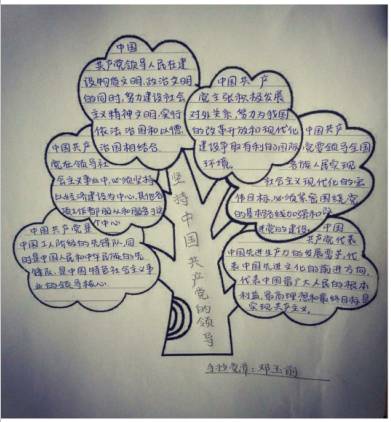 中国
共产党领导人民在建
设物质文明、政治文明
的同时,努力建设社会
主义精神文明,实行
依法治国和以德
治国相结合
中国共产
党主张积极发展
对外关系,努力为我国
的改革开放和现代化
建设争取有利的国际
环境。
中国共产
党在领导社
会主义事业中,必须坚持
以经济建设为中心,其他各
项工作都服从和服务于
这个中心
中国共产
党要领导全国
各族人民实现
社会主义现代化的宏
伟目标,必须紧密围绕党
的基本路线加强和改
进党的建设。
中国共产党是
中国工人阶级的先锋队,同
时是中国人民和中华民族的先
锋队,是中国特色社会主义事
业的领导核心。
中国
共产党代表
中国先进生产力的发展要求,代
表中国先进文化的前进方向,
代表中国最广大人民的根本
利益。最高理想和最终目标是
实现共产主义。
坚持中国共产党的领导
手抄党章:邓玉前